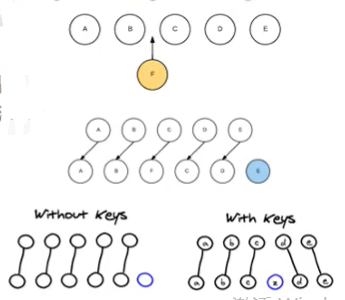 A B C D E
F
A B C D E
A B F C D E
Without Keys With Keys
a b c d e
a b c x d e